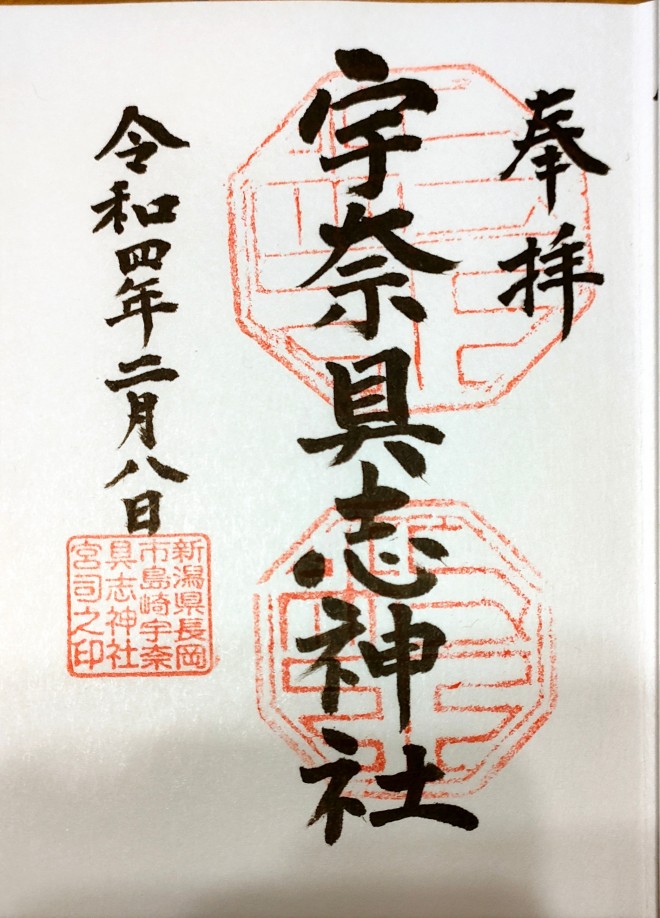 奉拝
宇奈具志神社
令和四年二月八日
新潟県長岡
市島崎宇奈
具志神社
宮司之印